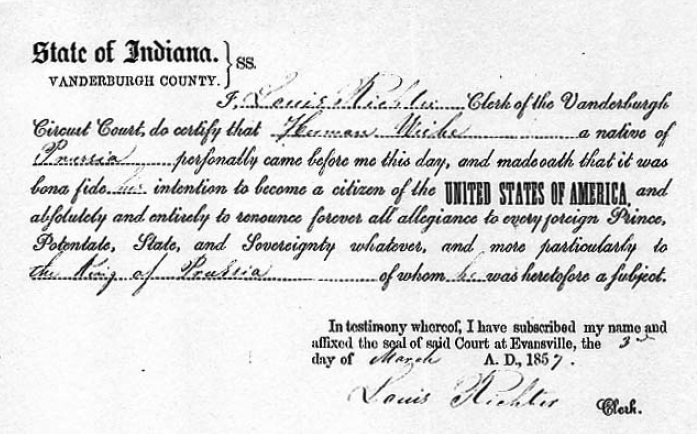 State of Indiana. } SS.
VANDERBURGH COUNTY.
I, Louis Richter Clerk of the Vanderburgh
Circuit Court, do certify that Herman Wiehe a native of
Prussia personally came before me this day, and made oath that it was
bona fide his intention to become a citizen of the UNITED STATES OF AMERICA, and
absolutely and entirely to renounce forever all allegiance to every foreign Prince,
Potentate, State, and Sovereignty whatever, and more particularly to
the King of Prussia of whom he was heretofore a subject.
In testimony whereof, I have subscribed my name and
affixed the seal of said Court at Evansville, the 3rd
day of March A. D., 1857.
Louis Richter Clerk.